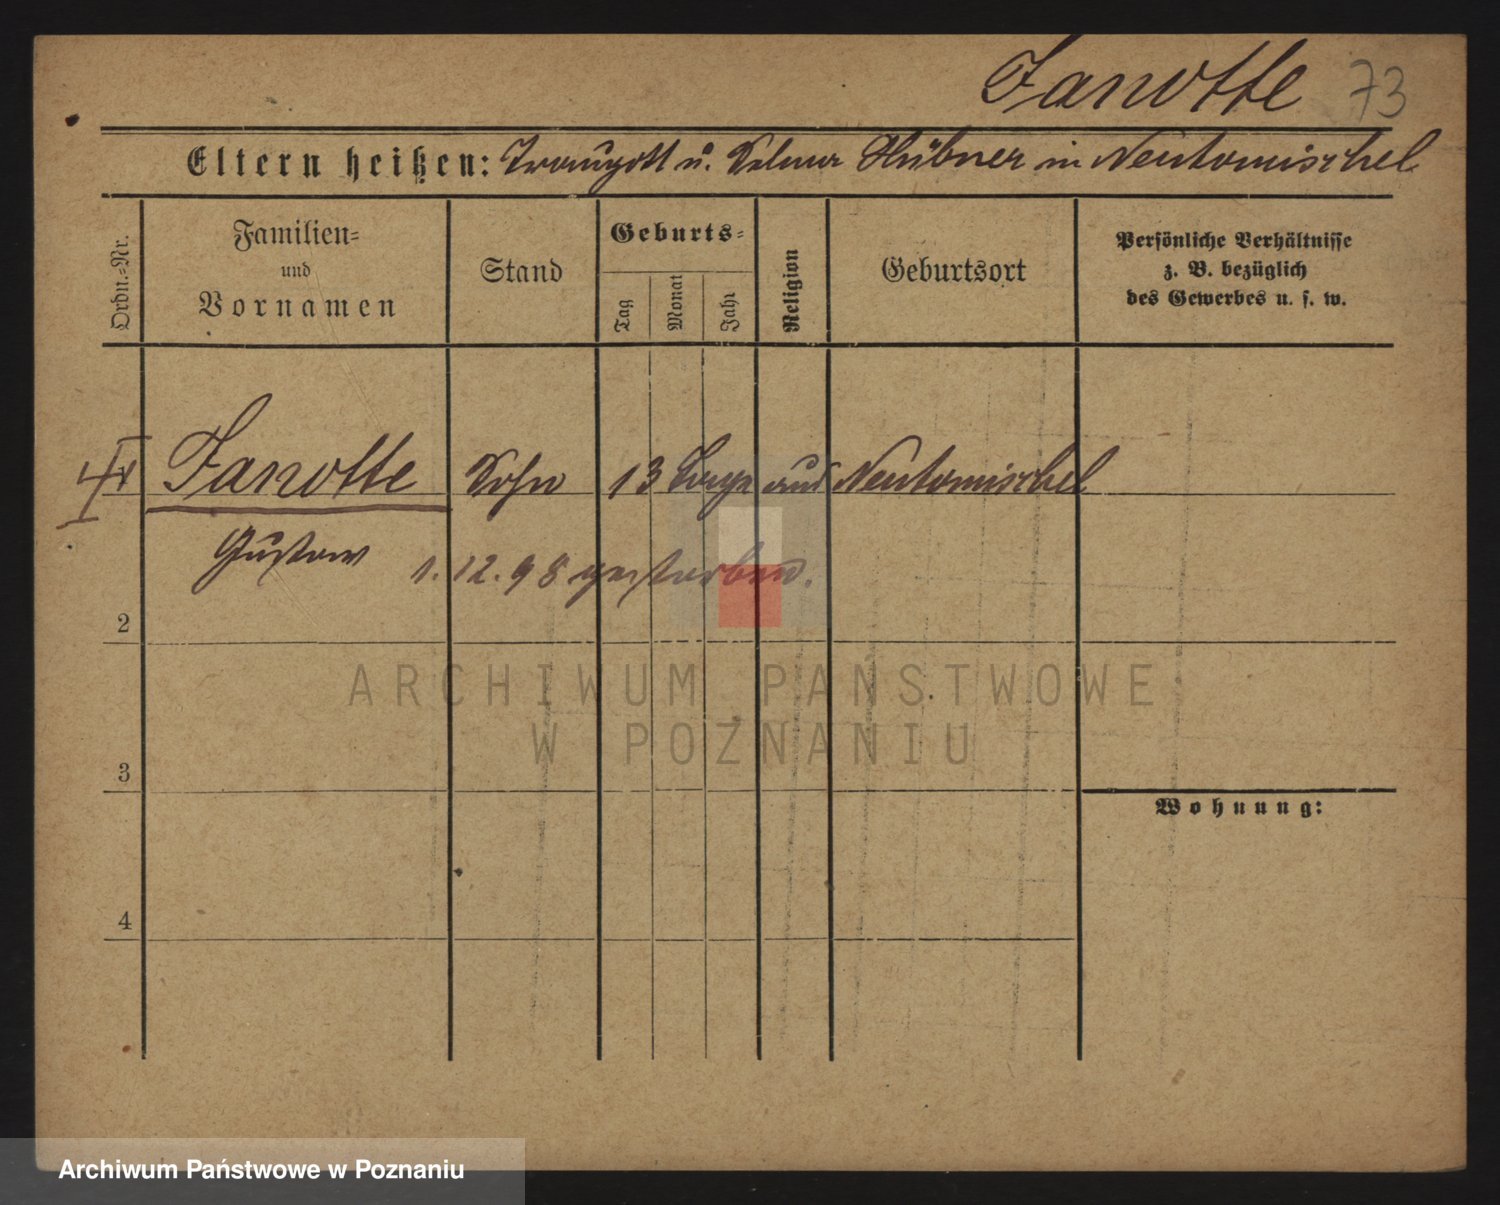 Janotte 73
Eltern heißen: Traugott u. Selma Hübner in Neutomischel
Ordn.-Nr.
Familien-
und
Vornamen
Stand
Geburts-
Tag
Monat
Jahr
Religion
Geburtsort
Persönliche Verhältnisse
z. B. bezüglich
des Gewerbes u. s. w.
Janotte Sohn 13 Tage aus Neutomischel
Gustav 1.12.98 gestorben.
2
ARCHIWUM PAŃSTWOWE
W POZNANIU
3
Wohnung:
4
Archiwum Państwowe w Poznaniu